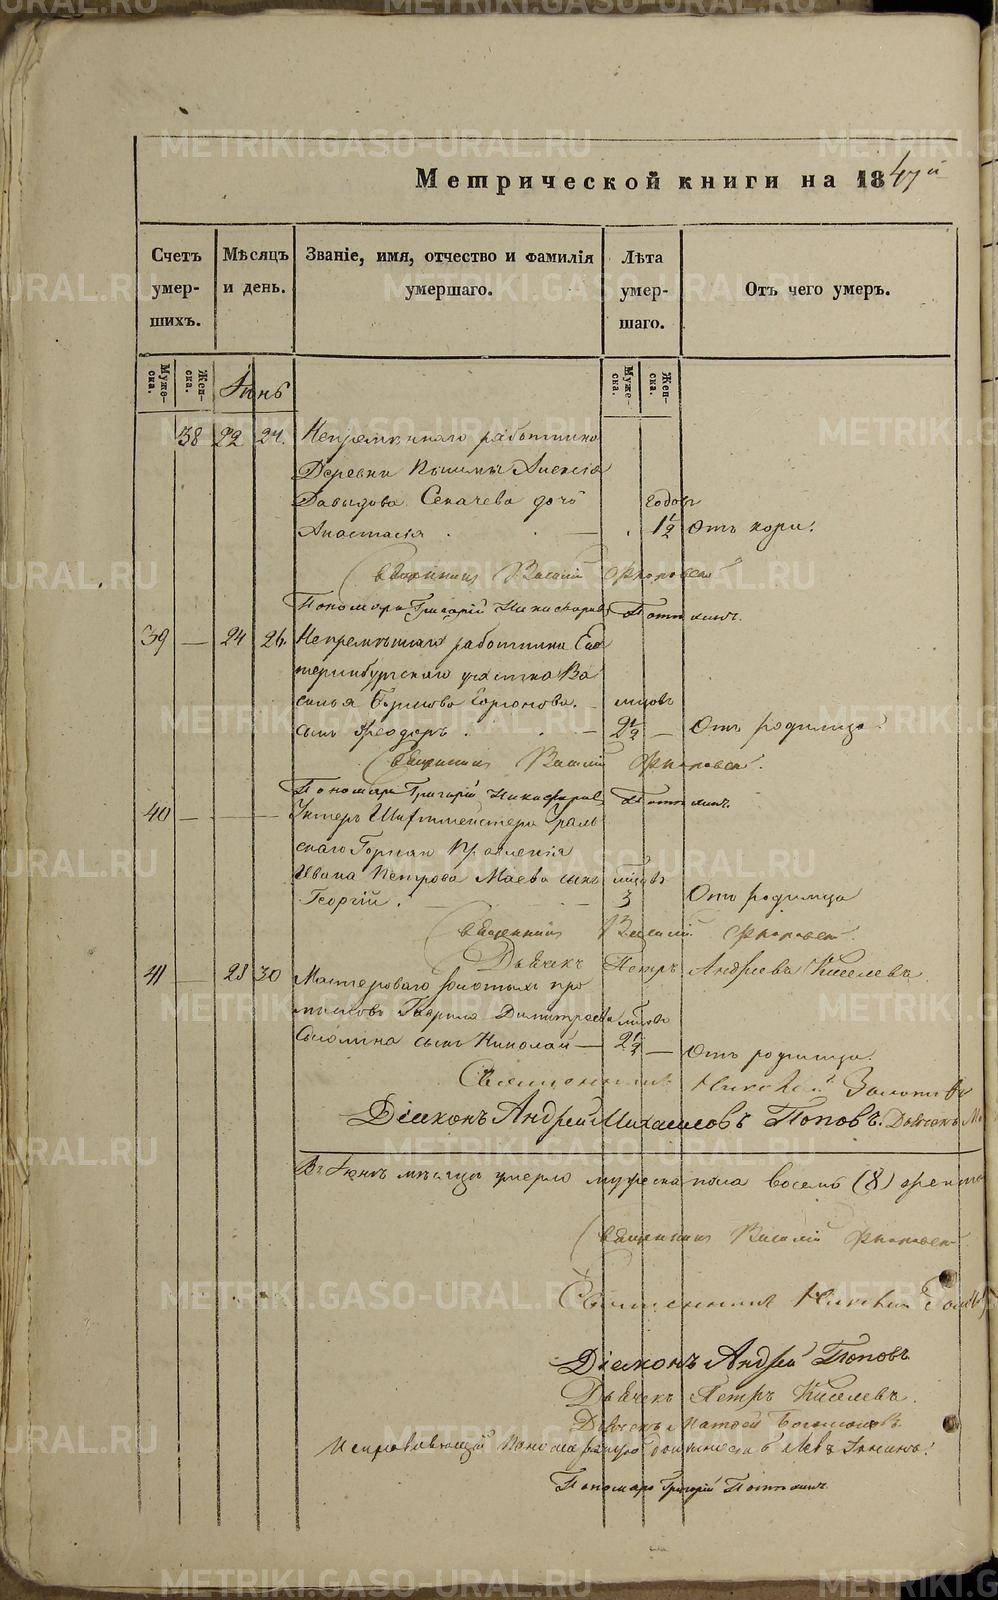 Метрической книги на 1847й
Счетъ умер- шихъ.
Мѣсяцъ и день.
Званіе, имя, отчество и фамилія умершаго.
Лѣта умер- шаго.
Отъ чего умеръ.
Муже- ска.
Жен- ска.
Муже- ска.
Жен- ска.
Іюнь
38 22 24. Непремѣннаго работника
Деревни Пышмы Алексія
Давыдова Секачева дочь
годов
Анастасія 1½ Отъ кори.
Священникъ Василій
Пономарь Григорій Никифоровъ
39 — 24 26. Непременнаго работника Ека
теринбургскаго участка Ва
силья
мцовъ
сынъ Феодоръ. — 2½ — Отъ родимца.
Священникъ Василій
Пономарь Григорій Никифоровъ
40 — — — Унтеръ Шихтмейстера Ураль
скаго Горнаго Правленія
Ивана Петрова Маева сынъ мцовъ
Георгій. 3 Отъ родимца
Священникъ Василій
Дьячекъ Петръ Андреевъ Киселевъ
41 — 28 30 Мастероваго золотыхъ про
мысловъ Гаврила Димитріева мцовъ
сынъ Николай — 2½ — Отъ родимца.
Священникъ Николай
Діаконъ Андрей Михаиловъ Поповъ. Дьячекъ
Въ Іюнѣ мѣсяцѣ умерло мужеска пола восемь (8)
Священникъ Василій
Священникъ Николай
Діаконъ Андрей Поповъ
Дьячекъ Петръ Киселевъ.
Дьячекъ Матвей
Исправляющій Пономарскую должность Левъ
Пономарь Григорій
METRIKI.GASO-URAL.RU